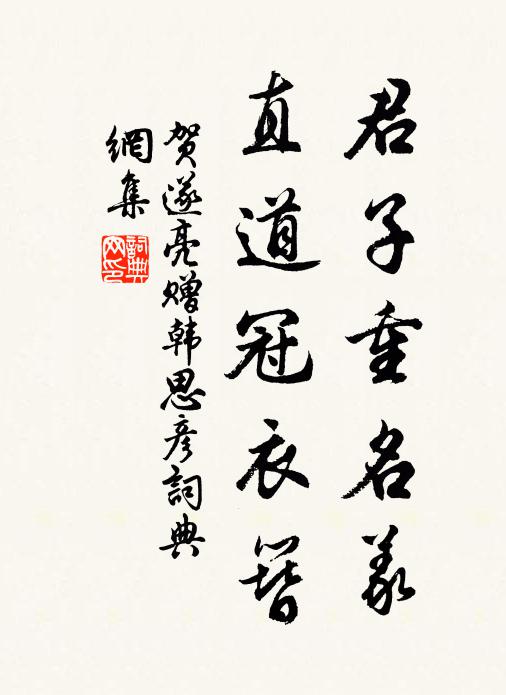 君子重名義
直道冠衣簪
賀遂亮贈韩思彦詞典
網集
詞典
网印